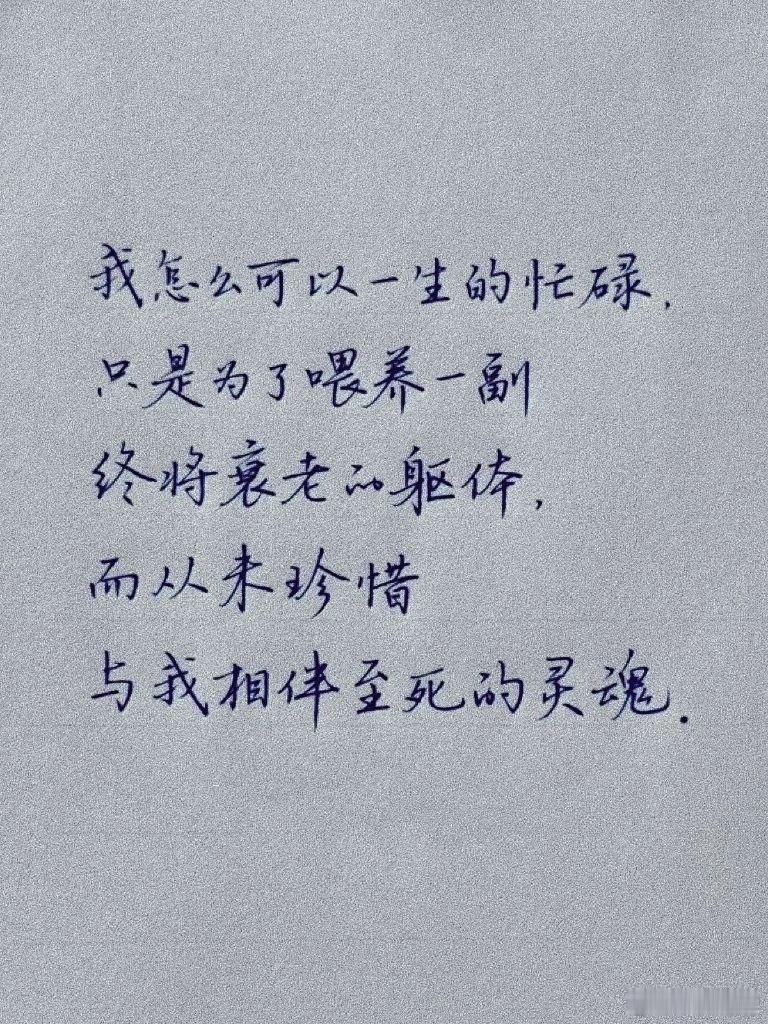 我怎么可以一生的忙碌,
只是为了喂养一副
终将衰老的躯体,
而从未珍惜
与我相伴至死的灵魂.